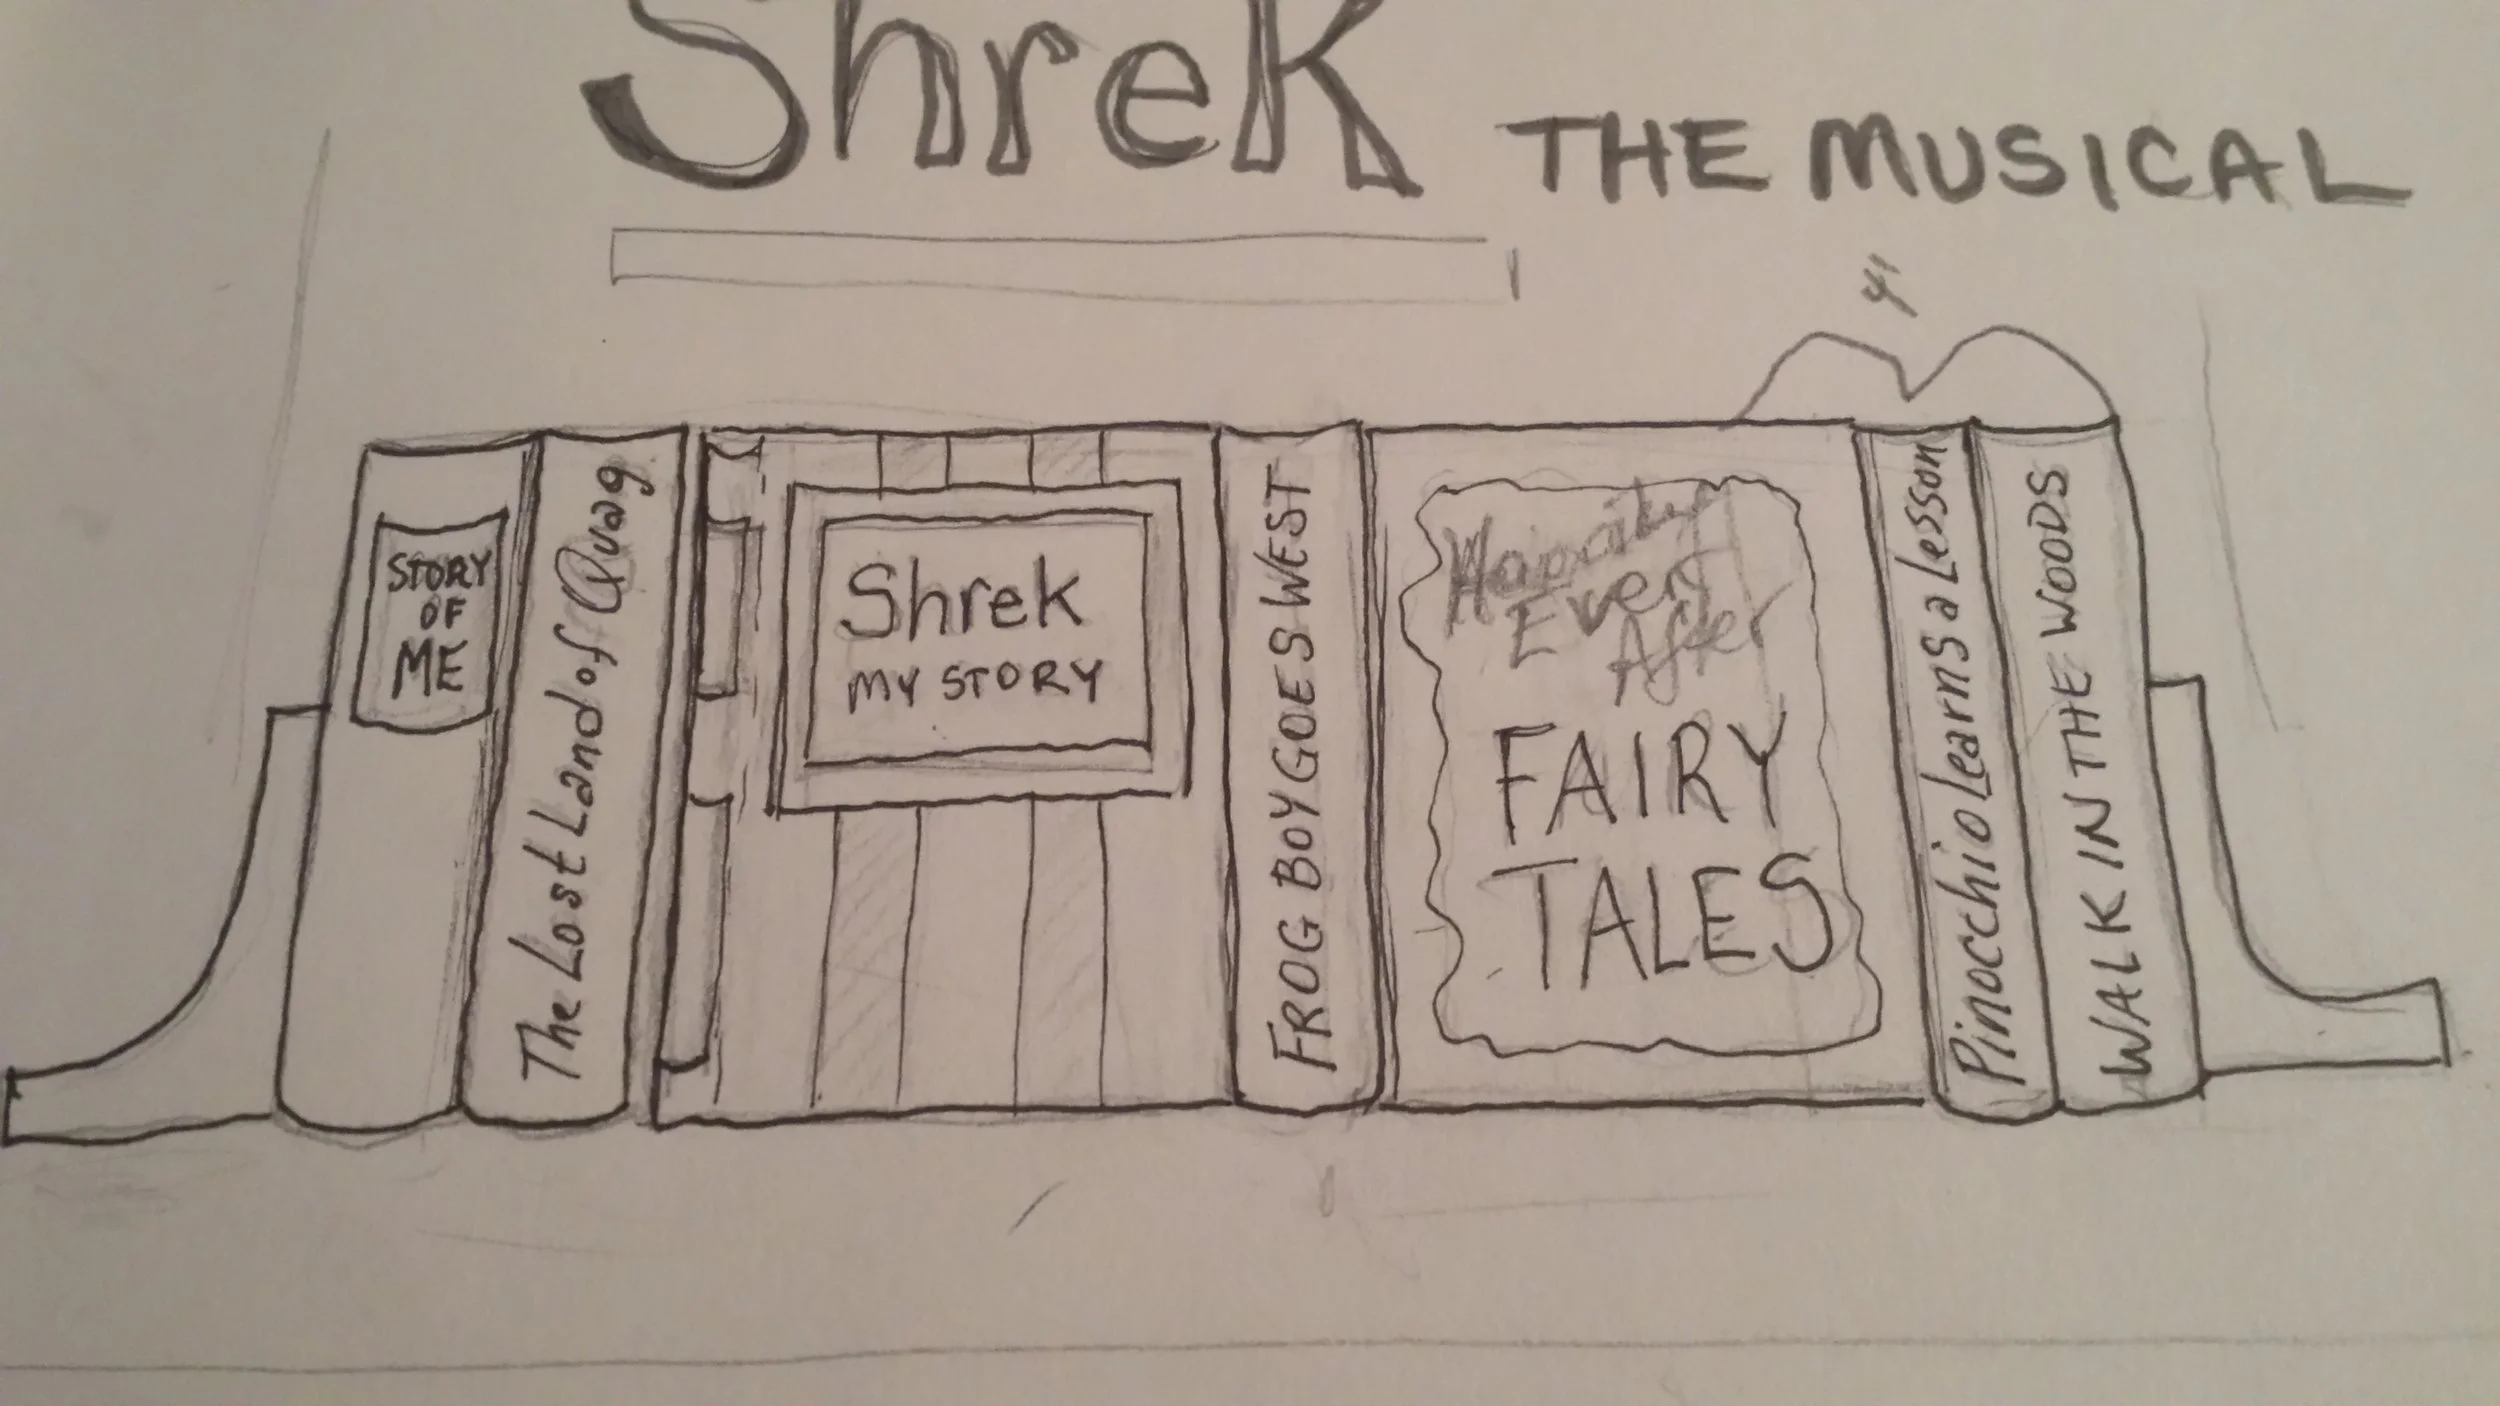 Shrek
THE MUSICAL
4'
STORY
OF
ME
The Lost Land of Quag
Shrek
MY STORY
FROG BOY GOES WEST
Happily
Ever
After
FAIRY
TALES
Pinocchio Learns a Lesson
WALK IN THE WOODS